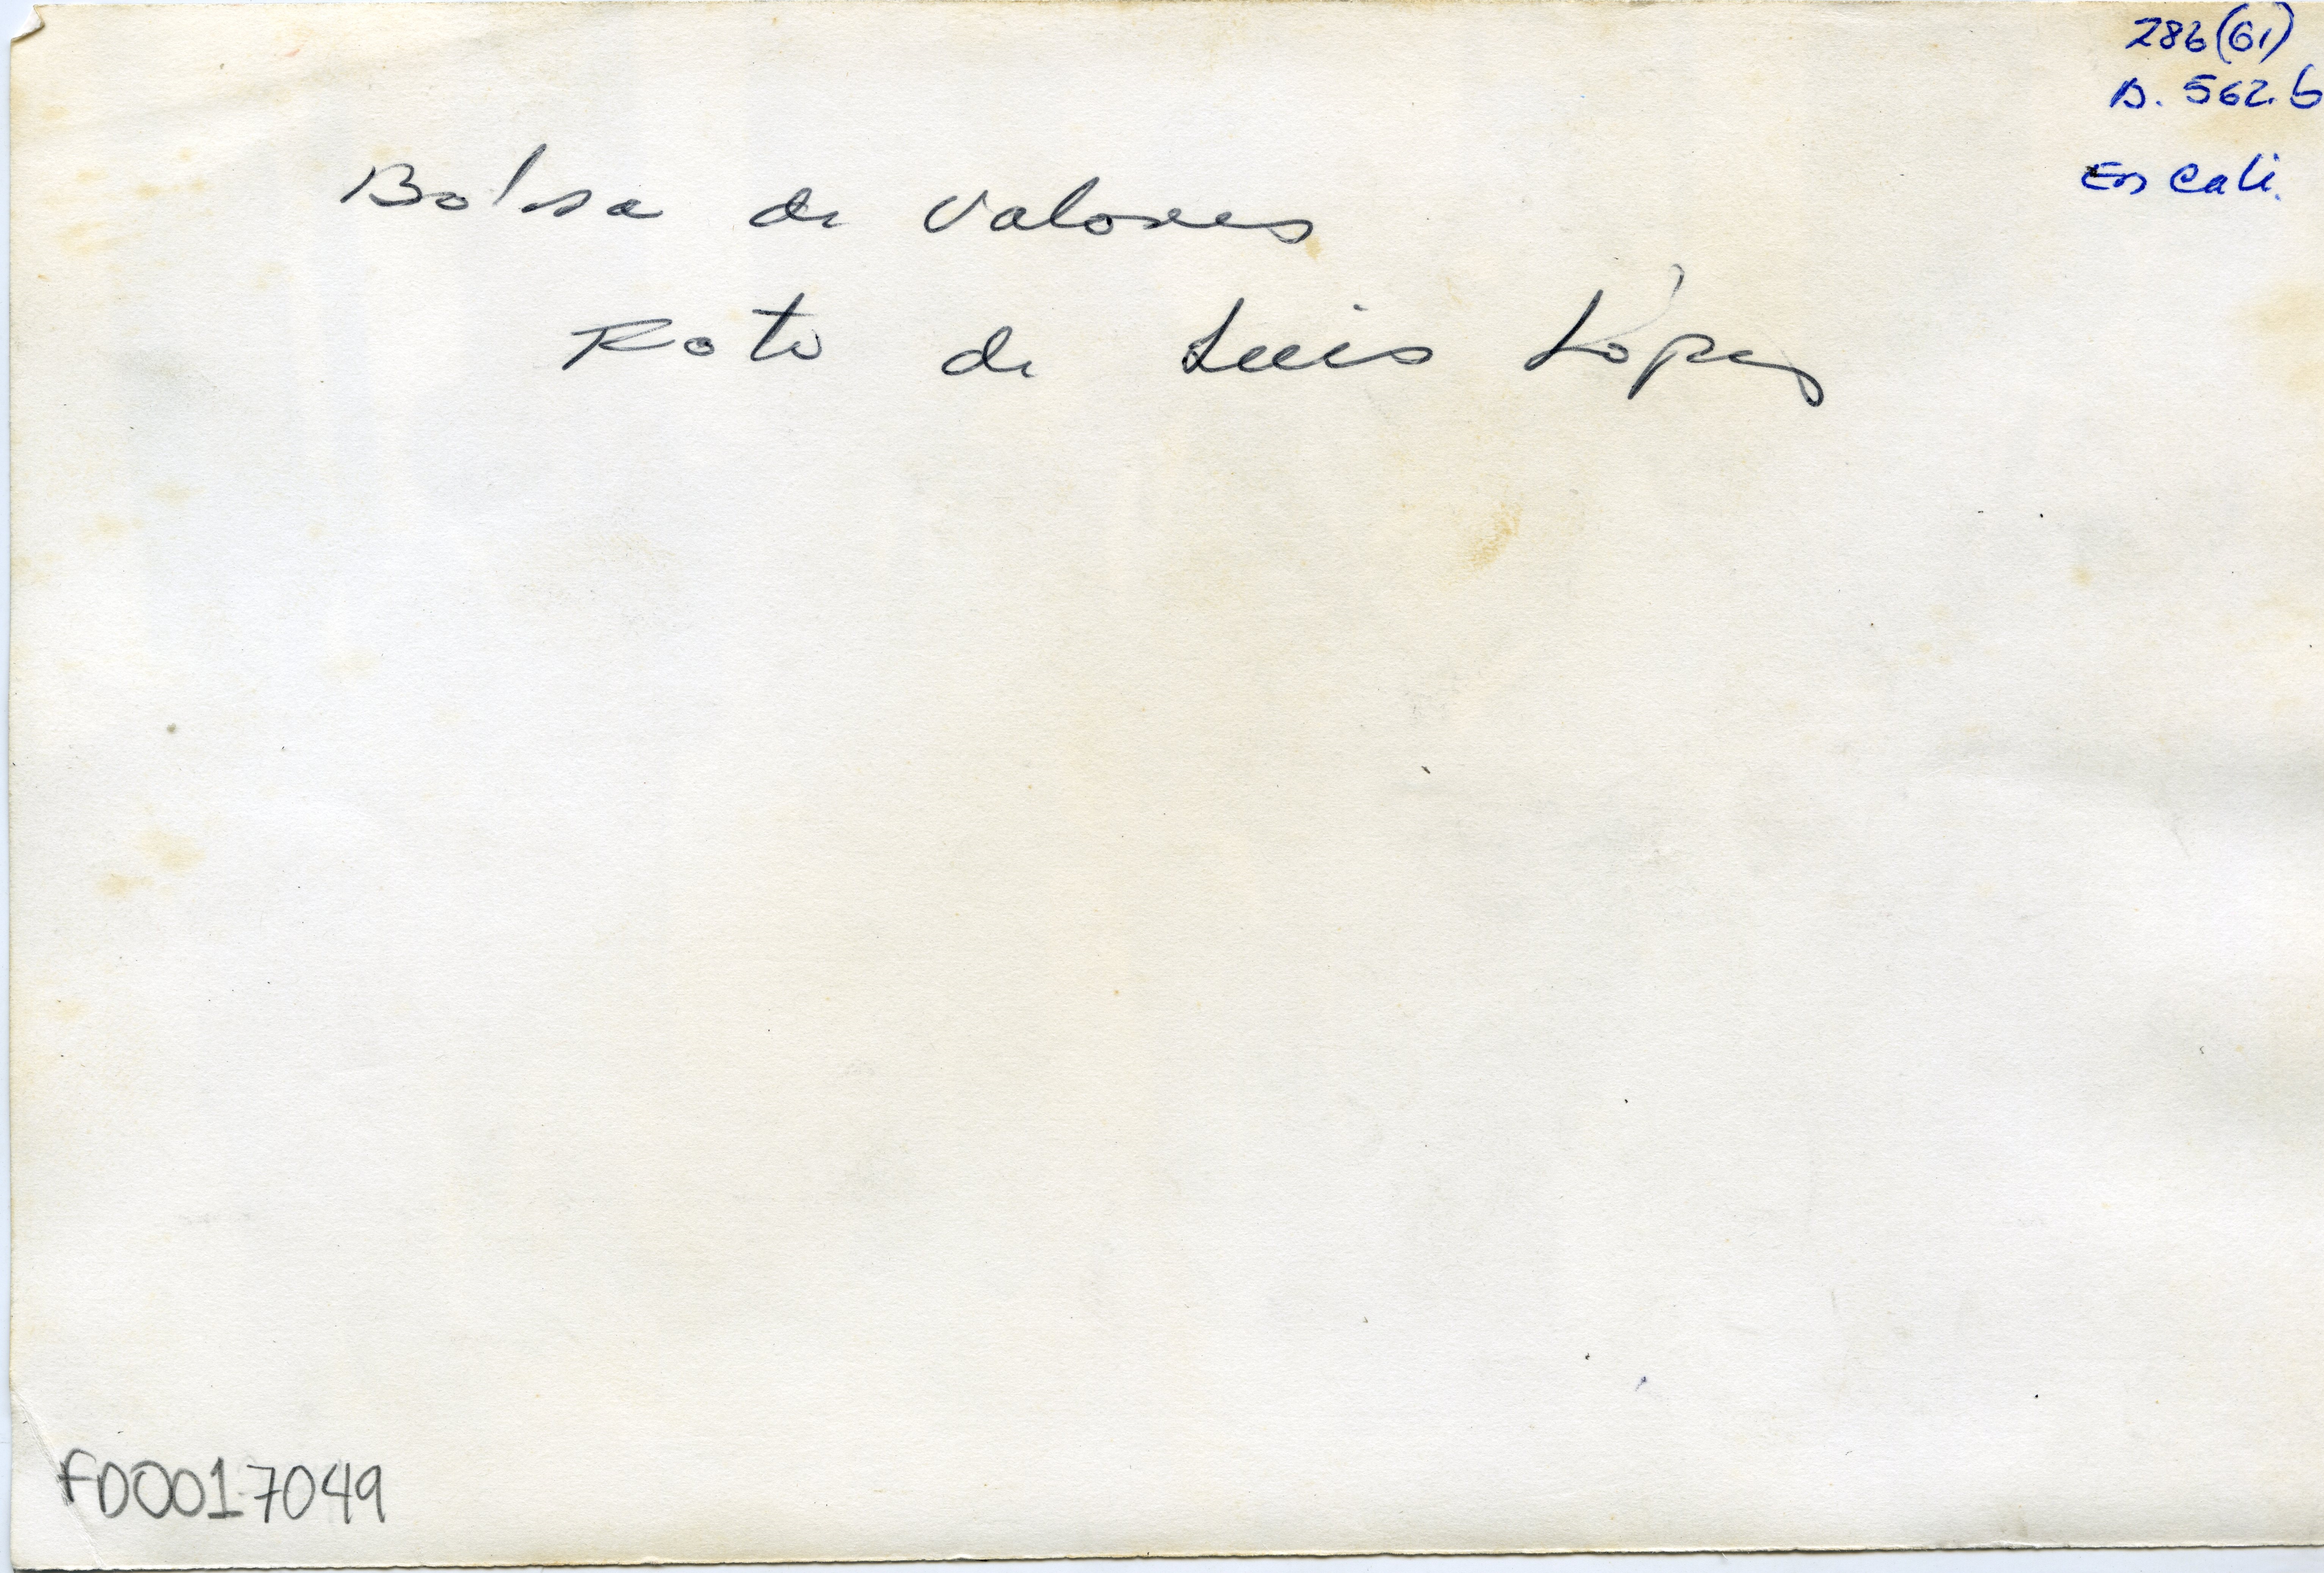 286(61)
B. 562.b
En Cali.
Bolsa de Valores
Foto de Luis López
FD0017049